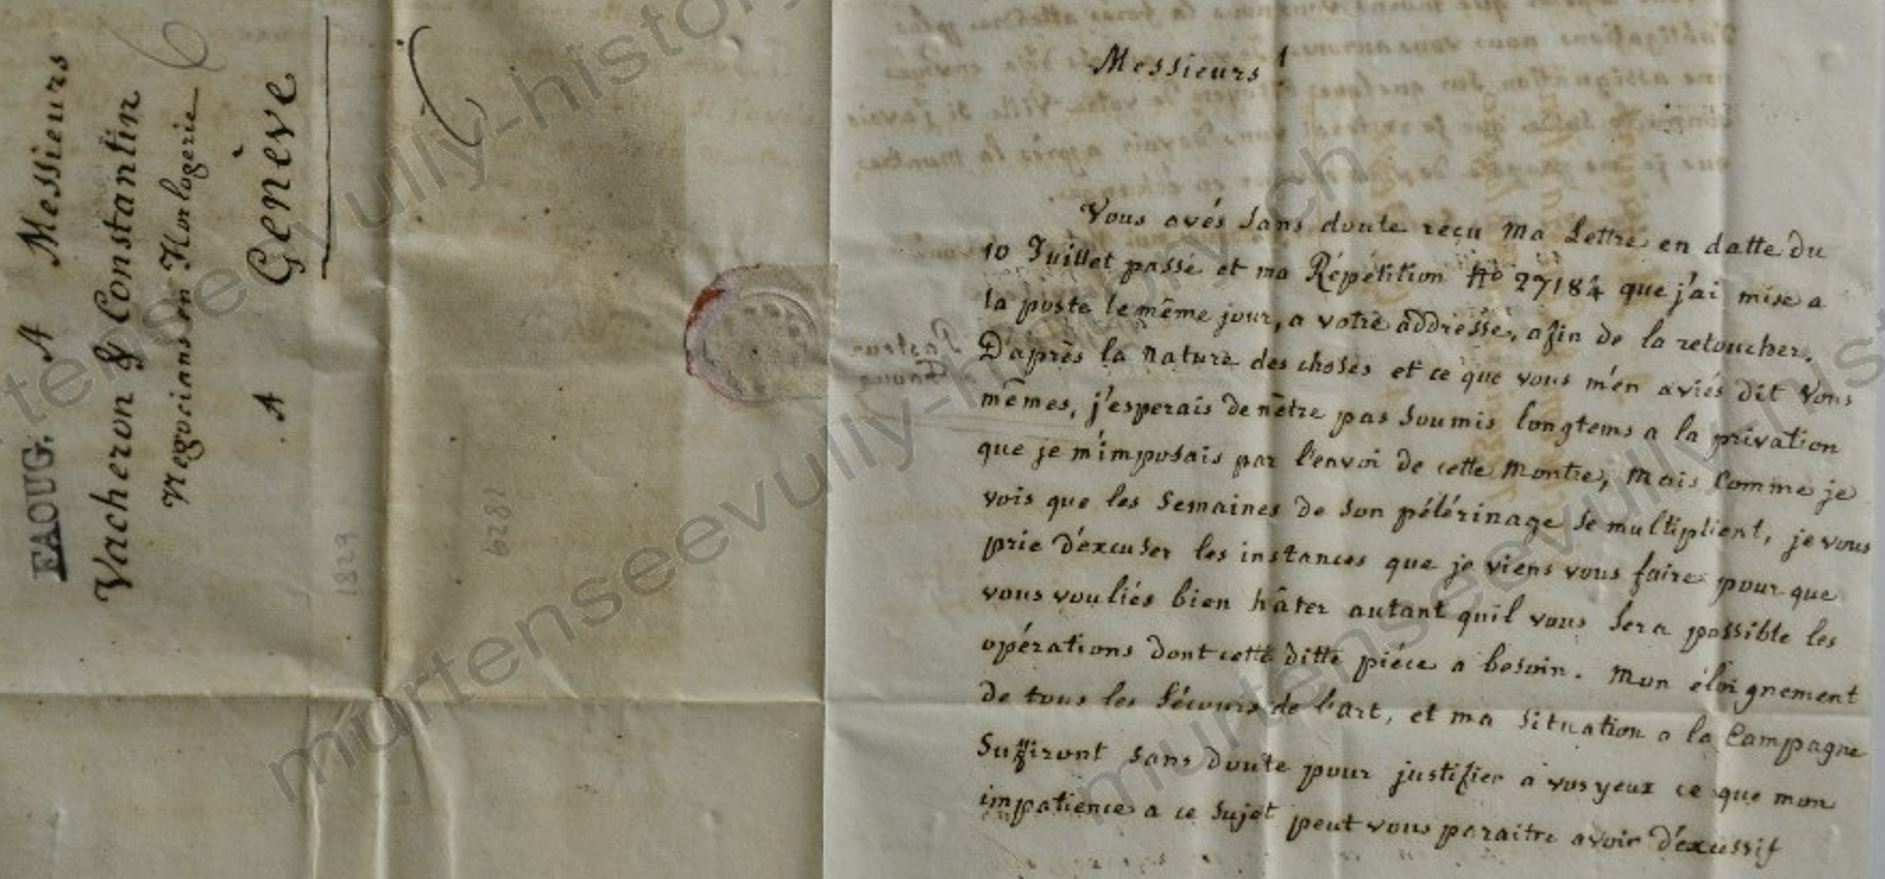 A Messieurs
Vacheron & Constantin
Negocians en Horlogerie
A Genève
FAOUG.
1829
1829
Messieurs!
Vous avés sans doute reçu ma Lettre en datte du
10 Juillet passé et ma Répétition No 27184 que j'ai mise a
la poste le même jour, a votre addresse, afin de la retoucher.
D'après la nature des choses et ce que vous m'en aviés dit vous
mêmes, j'esperais de nêtre pas soumis longtems a la privation
que je m'imposais par l'envoi de cette montre, mais comme je
vois que les semaines de son pélérinage se multiplient, je vous
prie d'excuser les instances que je viens vous faire pour que
vous vouliés bien hâter autant quil vous sera possible les
opérations dont cette ditte piéce a besoin. Mon éloignement
de tous les sécours de l'art, et ma situation a la Campagne
suffiront sans doute pour justifier a vos yeux ce que mon
impatience a ce sujet peut vous paraitre avoir d'éxcessif
murtenseevully-history.ch
murtenseevully-history.ch